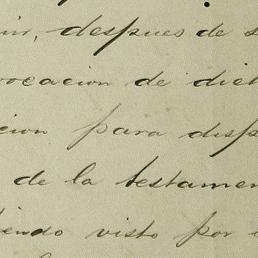 uir, despues de s
vocacion de dich
cion para disp
de la testamen
tiendo visto por